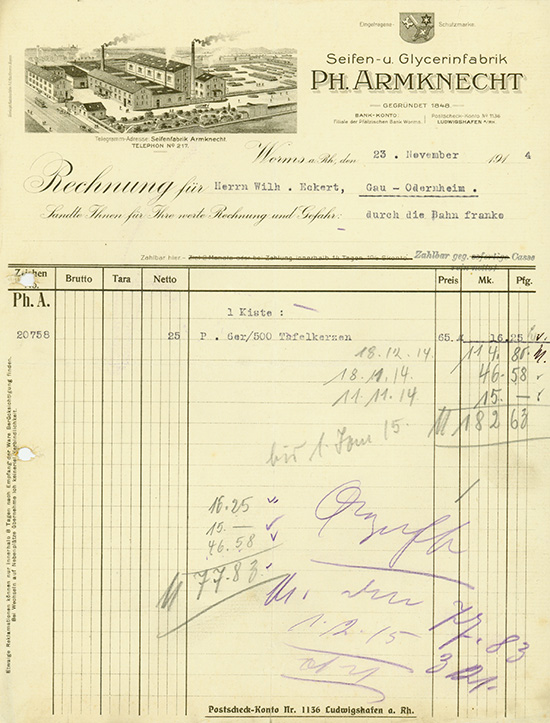 Eingetragene Schutzmarke.
Seifen-u. Glycerinfabrik
PH. ARMKNECHT
GEGRÜNDET 1848.
BANK-KONTO:
Filiale der Pfälzischen Bank Worms.
Postscheck-Konto No 1136
LUDWIGSHAFEN A/RH.
Telegramm-Adresse: Seifenfabrik Armknecht.
TELEPHON No 217.
Worms a. Rh., den 23. November 1914
Rechnung für Herrn Wilh. Eckert, Gau - Odernheim.
Sandte Ihnen für Ihre werte Rechnung und Gefahr: durch die Bahn franko
Zahlbar hier. Zahlbar geg. sofortige Cassa
rein netto!
Zeichen No. Brutto Tara Netto Preis Mk. Pfg.
Ph. A.
1 Kiste :
20758 25 P. 6er/500 Tafelkerzen 65.- 16.25
18.12.14. 114. 80.
18.11.14 46. 58
11.11.14 15. —
M 182 63
bis 1. Jan 15.
16.25
15.—
46.58
M 77.83
M. 77.83
1.2.15
Etwaige Reklamationen können nur innerhalb 8 Tagen nach Empfang der Ware Berücksichtigung finden.
Bei Wechseln auf Nebenplätze übernehme ich keinerlei Verbindlichkeit.
Postscheck-Konto Nr. 1136 Ludwigshafen a. Rh.